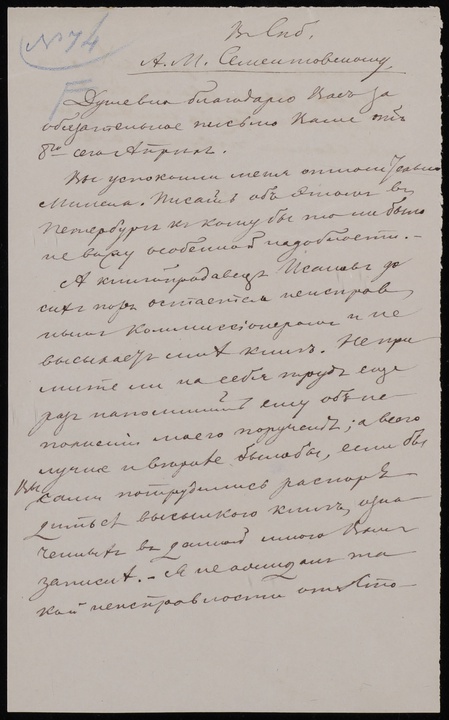 № 74
В Спб.
А. М. Сементовскому
Душевно благодарю Васъ за
обязательное письмо Ваше отъ
8го сего Апреля.
Вы успокоили меня относительно
Микеля. Писать объ этомъ въ
Петербургъ къ кому бы то ни было
не вижу особенной надобности. –
А книгопродавецъ Исаковъ до
сихъ поръ остается неисправ
нымъ Коммиссіонеромъ и не
высылаетъ мнѣ книгъ. Не при
мите ли на себя трудъ еще
разъ напомнить ему объ ис
полненіи моего порученія; а всего
лучше и вѣрнѣе былобы, если бы
Вы
сами потрудились распоря
диться высылкою книгъ, озна
ченныхъ въ данной мною Вамъ
запискѣ. – Я не ожидалъ та
кой неисправности отъ